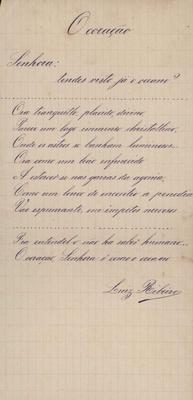 O coração
Senhora:
tendes visto já o oceano?
Ora tranquillo, placido, divino
Parece um lago immenso christallino,
Onde os astros se banham luminosos.
Ora como um leão enfurecido
A estorcer-se nas garras da agonia,
Como um louco de encontro a penedia
Vae espumante, em impetos nervosos
Pra entendel-o não ha saber humano...
O coração, Senhora é como o oceano
Luiz Ribeiro